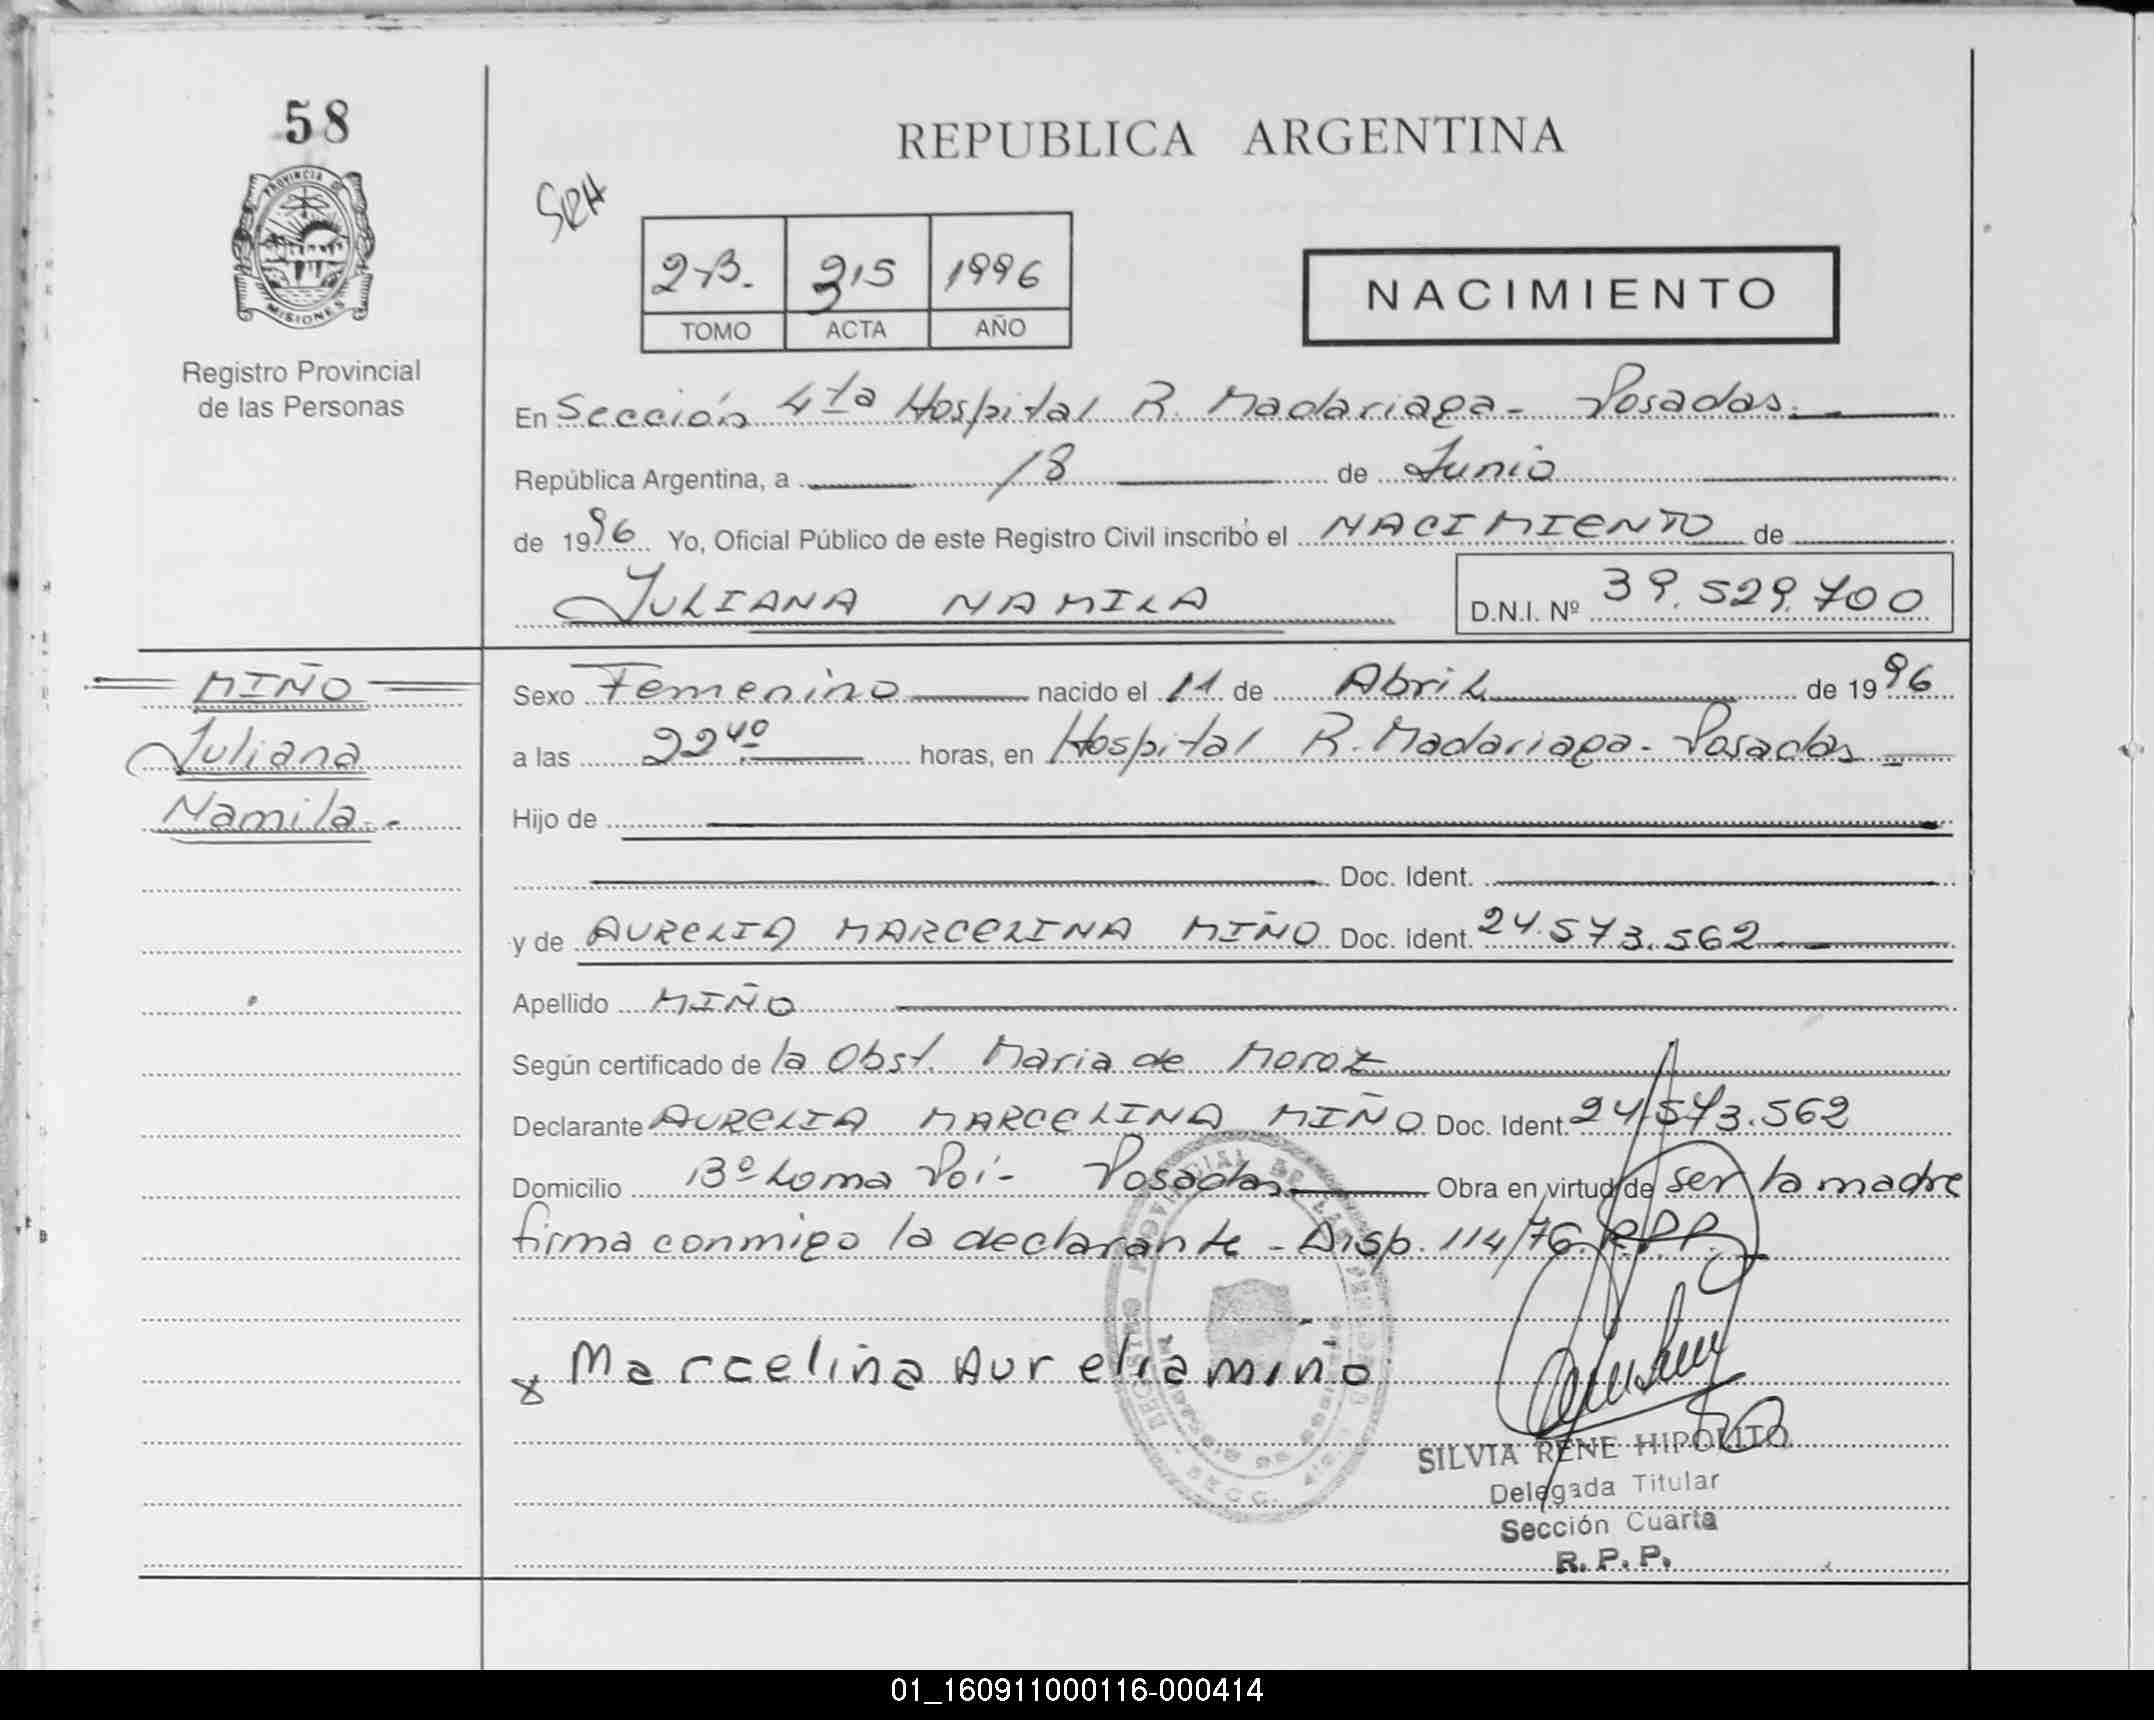 58
REPUBLICA ARGENTINA
SRH
PROVINCIA DE
MISIONES
2-B. 315 1996
TOMO ACTA AÑO
NACIMIENTO
Registro Provincial
de las Personas
En Sección 4ta Hospital R. Madariaga - Posadas.
República Argentina, a 18 de Junio
de 1996 Yo, Oficial Público de este Registro Civil inscribo el NACIMIENTO de
JULIANA NAMILA D.N.I. Nº 39.529.700
MIÑO
Juliana
Namila.-
Sexo Femenino nacido el 11 de Abril de 1996
a las 22 40 horas, en Hospital R. Madariaga - Posadas -
Hijo de
Doc. Ident.
y de AURELIA MARCELINA MIÑO Doc. Ident. 24.573.562
Apellido MIÑO
Según certificado de la Obst. Maria de Moroz
Declarante AURELIA MARCELINA MIÑO Doc. Ident. 24.573.562
Domicilio Bº Loma Poi - Posadas Obra en virtud de ser la madre
firma conmigo la declarante - Disp. 114/76. R.P.P.
x Marcelina Aurelia miño
REGISTRO PROVINCIAL DE LAS PERSONAS
SILVIA RENE HIPOLITO
Delegada Titular
Sección Cuarta
R. P. P.
01_160911000116-000414